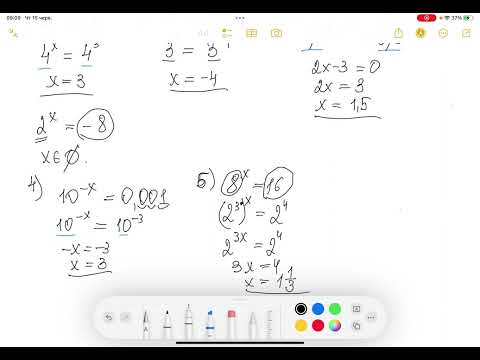 09:09 Чт 15 черв.
37%
4^x = 4^3
x = 3
3 = 3
x = -4
2x-3=0
2x = 3
x = 1,5
2^x = -8
x∈∅.
4) 10^{-x} = 0,001
10^{-x} = 10^{-3}
-x = -3
x = 3
5) 8^x = 16
(2^3)^x = 2^4
2^{3x} = 2^4
3x = 4
x = 1 1/3